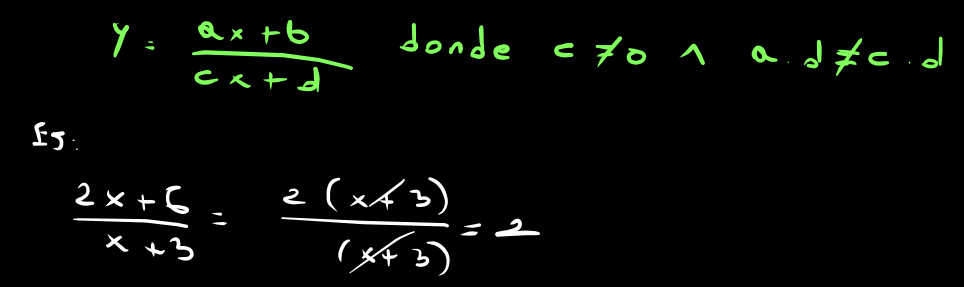 y = (ax + b)/(cx + d) donde c ≠ 0 ∧ a.d ≠ c.d
Ej:
(2x + 6)/(x + 3) = 2(x + 3)/(x + 3) = 2